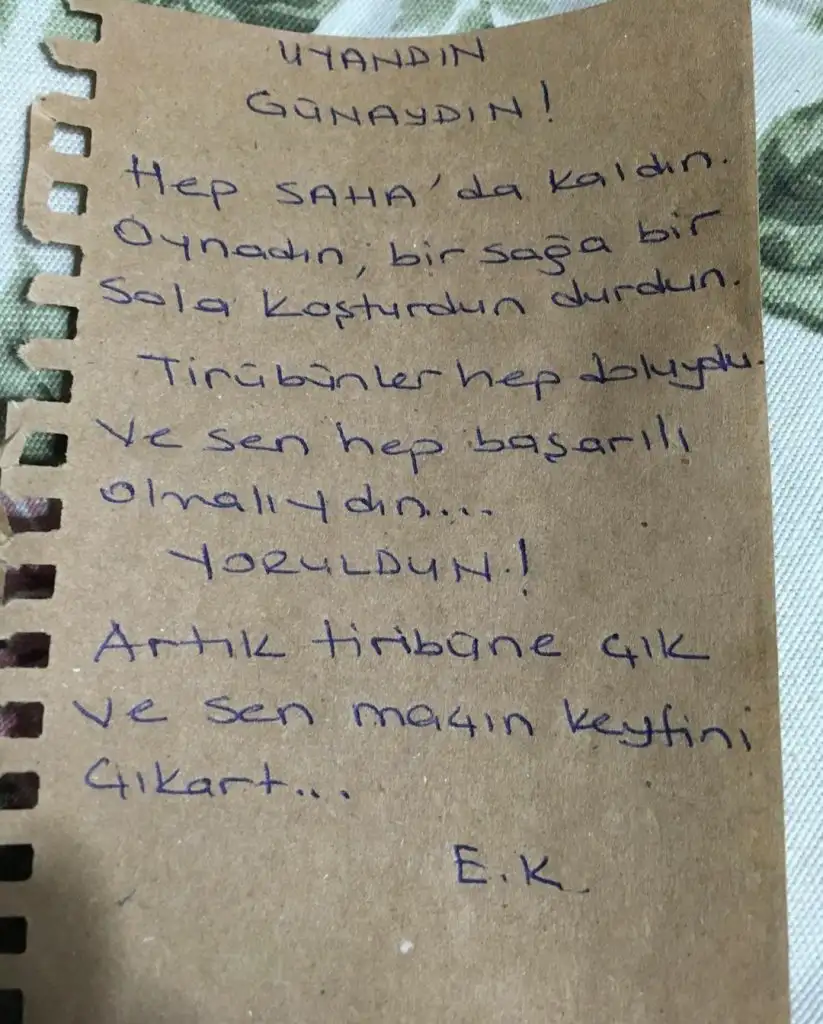 UYANDIN
GÜNAYDIN!
Hep SAHA'da kaldın.
Oynadın, bir sağa bir
Sola koşturdun durdun.
Tirübünler hep doluydu.
Ve sen hep başarılı
olmalıydın...
YORULDUN.!
Artık tiribüne çık
ve sen maçın keyfini
çıkart...
E.K